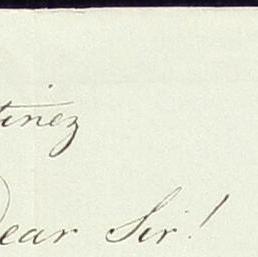 tinez
Dear Sir!